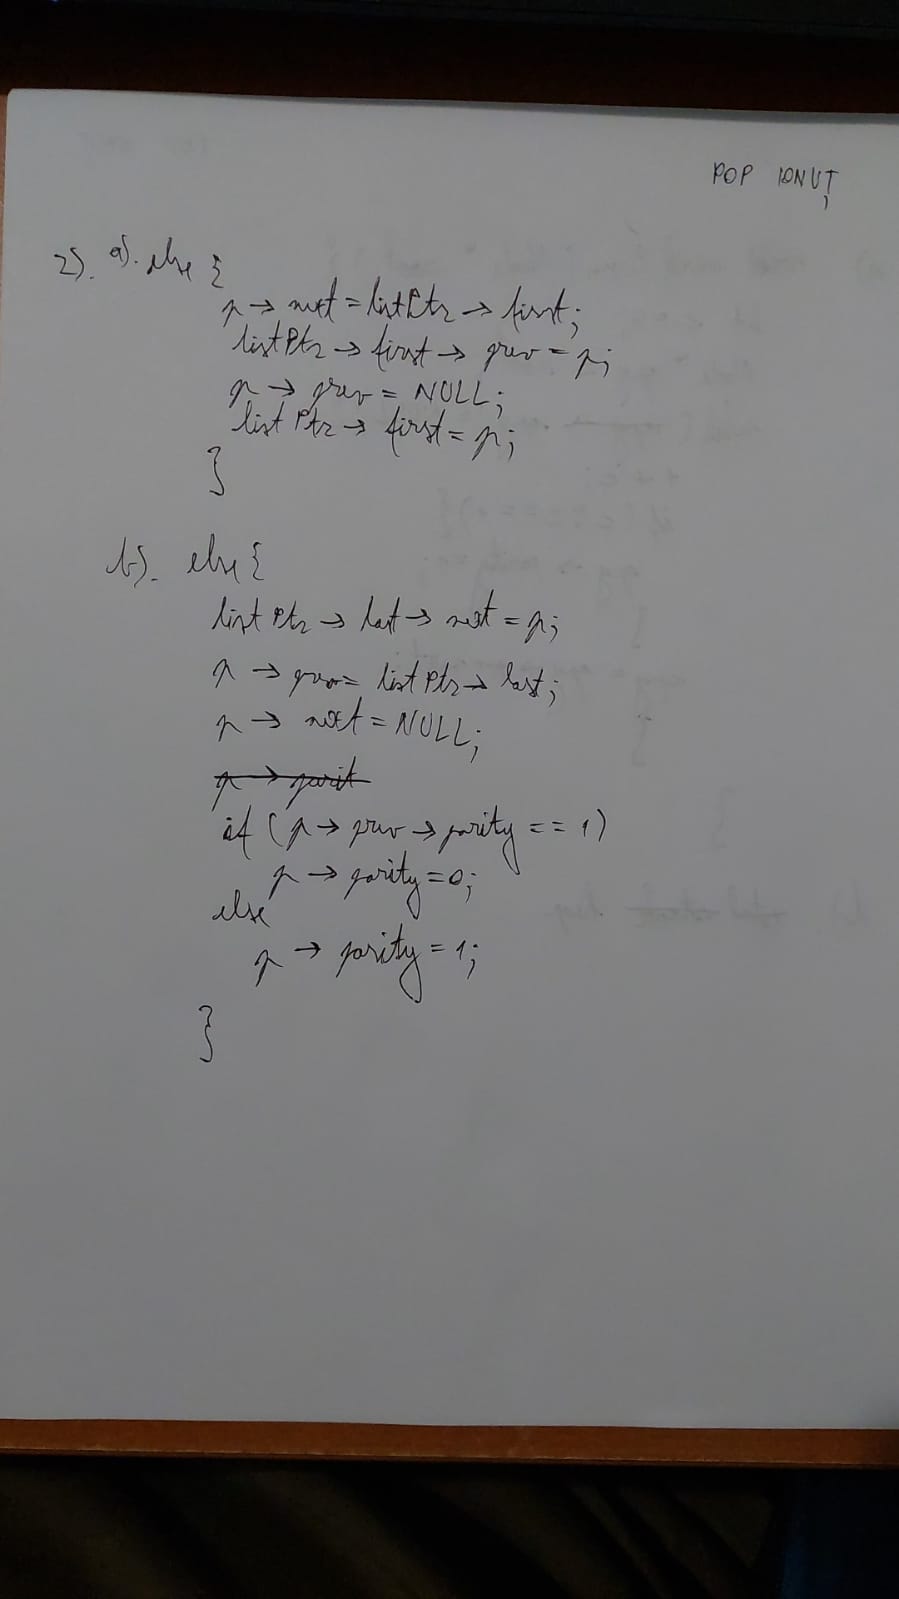 POP IONUȚ
2). a). else {
p → next = listPtr → first;
listPtr → first → prev = p;
p → prev = NULL;
listPtr → first = p;
}
b). else {
listPtr → last → next = p;
p → prev = listPtr → last;
p → next = NULL;
p → parit
if (p → prev → parity == 1)
p → parity = 0;
else
p → parity = 1;
}